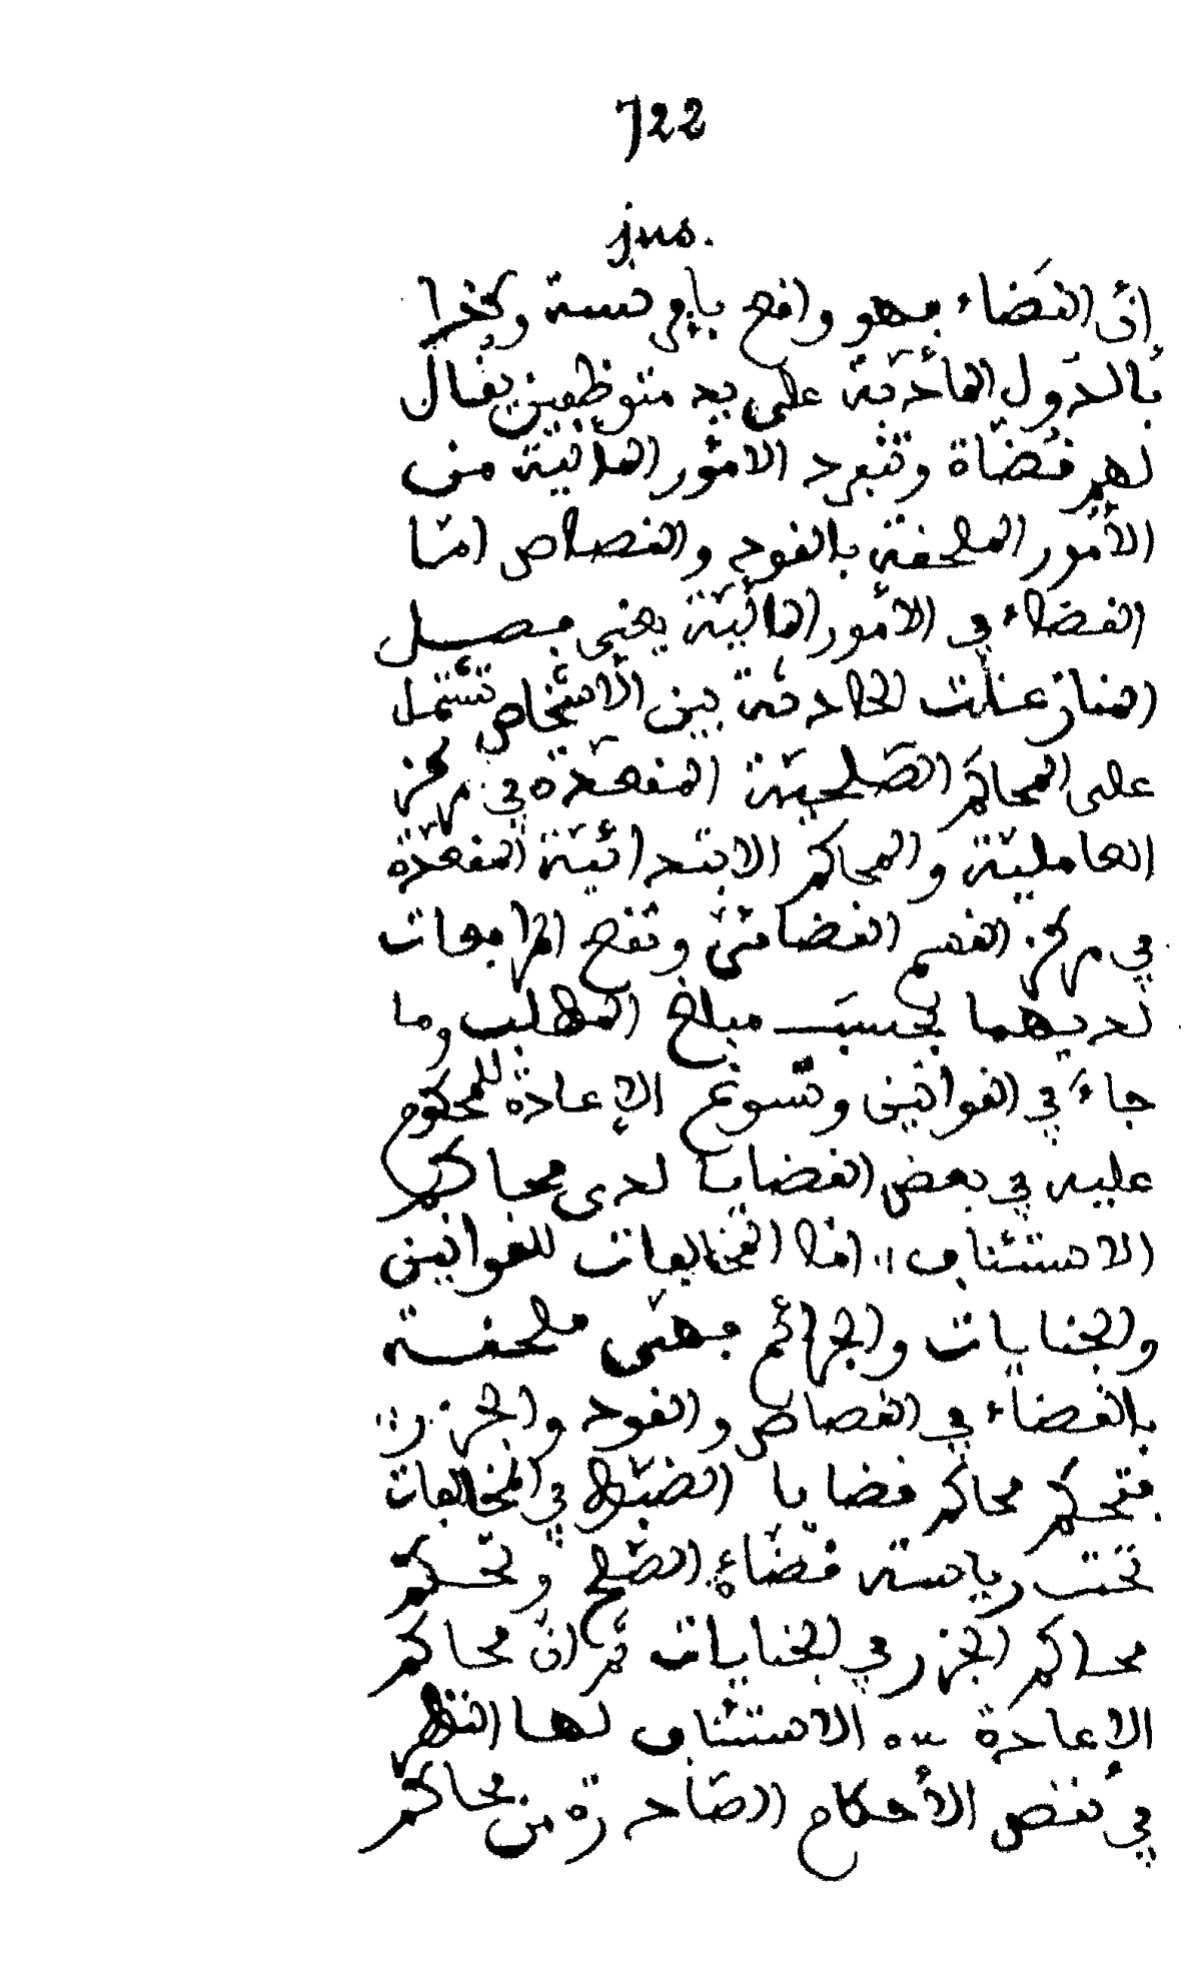 722
jus.
إنّ القضاء فهو واقع بافرنسة وكذا
بالدّول المأدبة على يد متوظفين يقال
لهم قضاة وتنفرد الامور المالية من
الأمور الملحقة بالقود والقصاص امّا
القضاء في الأمور المالية يعني فصل
المنازعات الحادثة بين الأشخاص تشتمل
على المحاكم الصّلحيّة المنعقدة في مركز
العامليّة والمحاكم الابتدائيّة المنعقدة
في مركز القسم القضائيّ وتقع المرافعات
لديهما بحسب مبلغ المطلب وما
جاءَ في القوانين وتسوغ الإعادة للمحكوم
عليه في بعض القضايا لدى محاكم
الاستئناف .. امّا المخالفات للقوانين
والجنايات والجرائم فهي ملحقة
بالقضاء في القصاص والقود والجزر ..
فتحكم محاكم قضايا الضبط في المخالفات
تحت رياسة قضاءِ الصّلح وتحكم
محاكم الجزر في الجنايات ثمّ انّ محاكم
الإعادة .. الاستئناف لها النّظر
في نقض الأحكام الصّادرة من محاكم